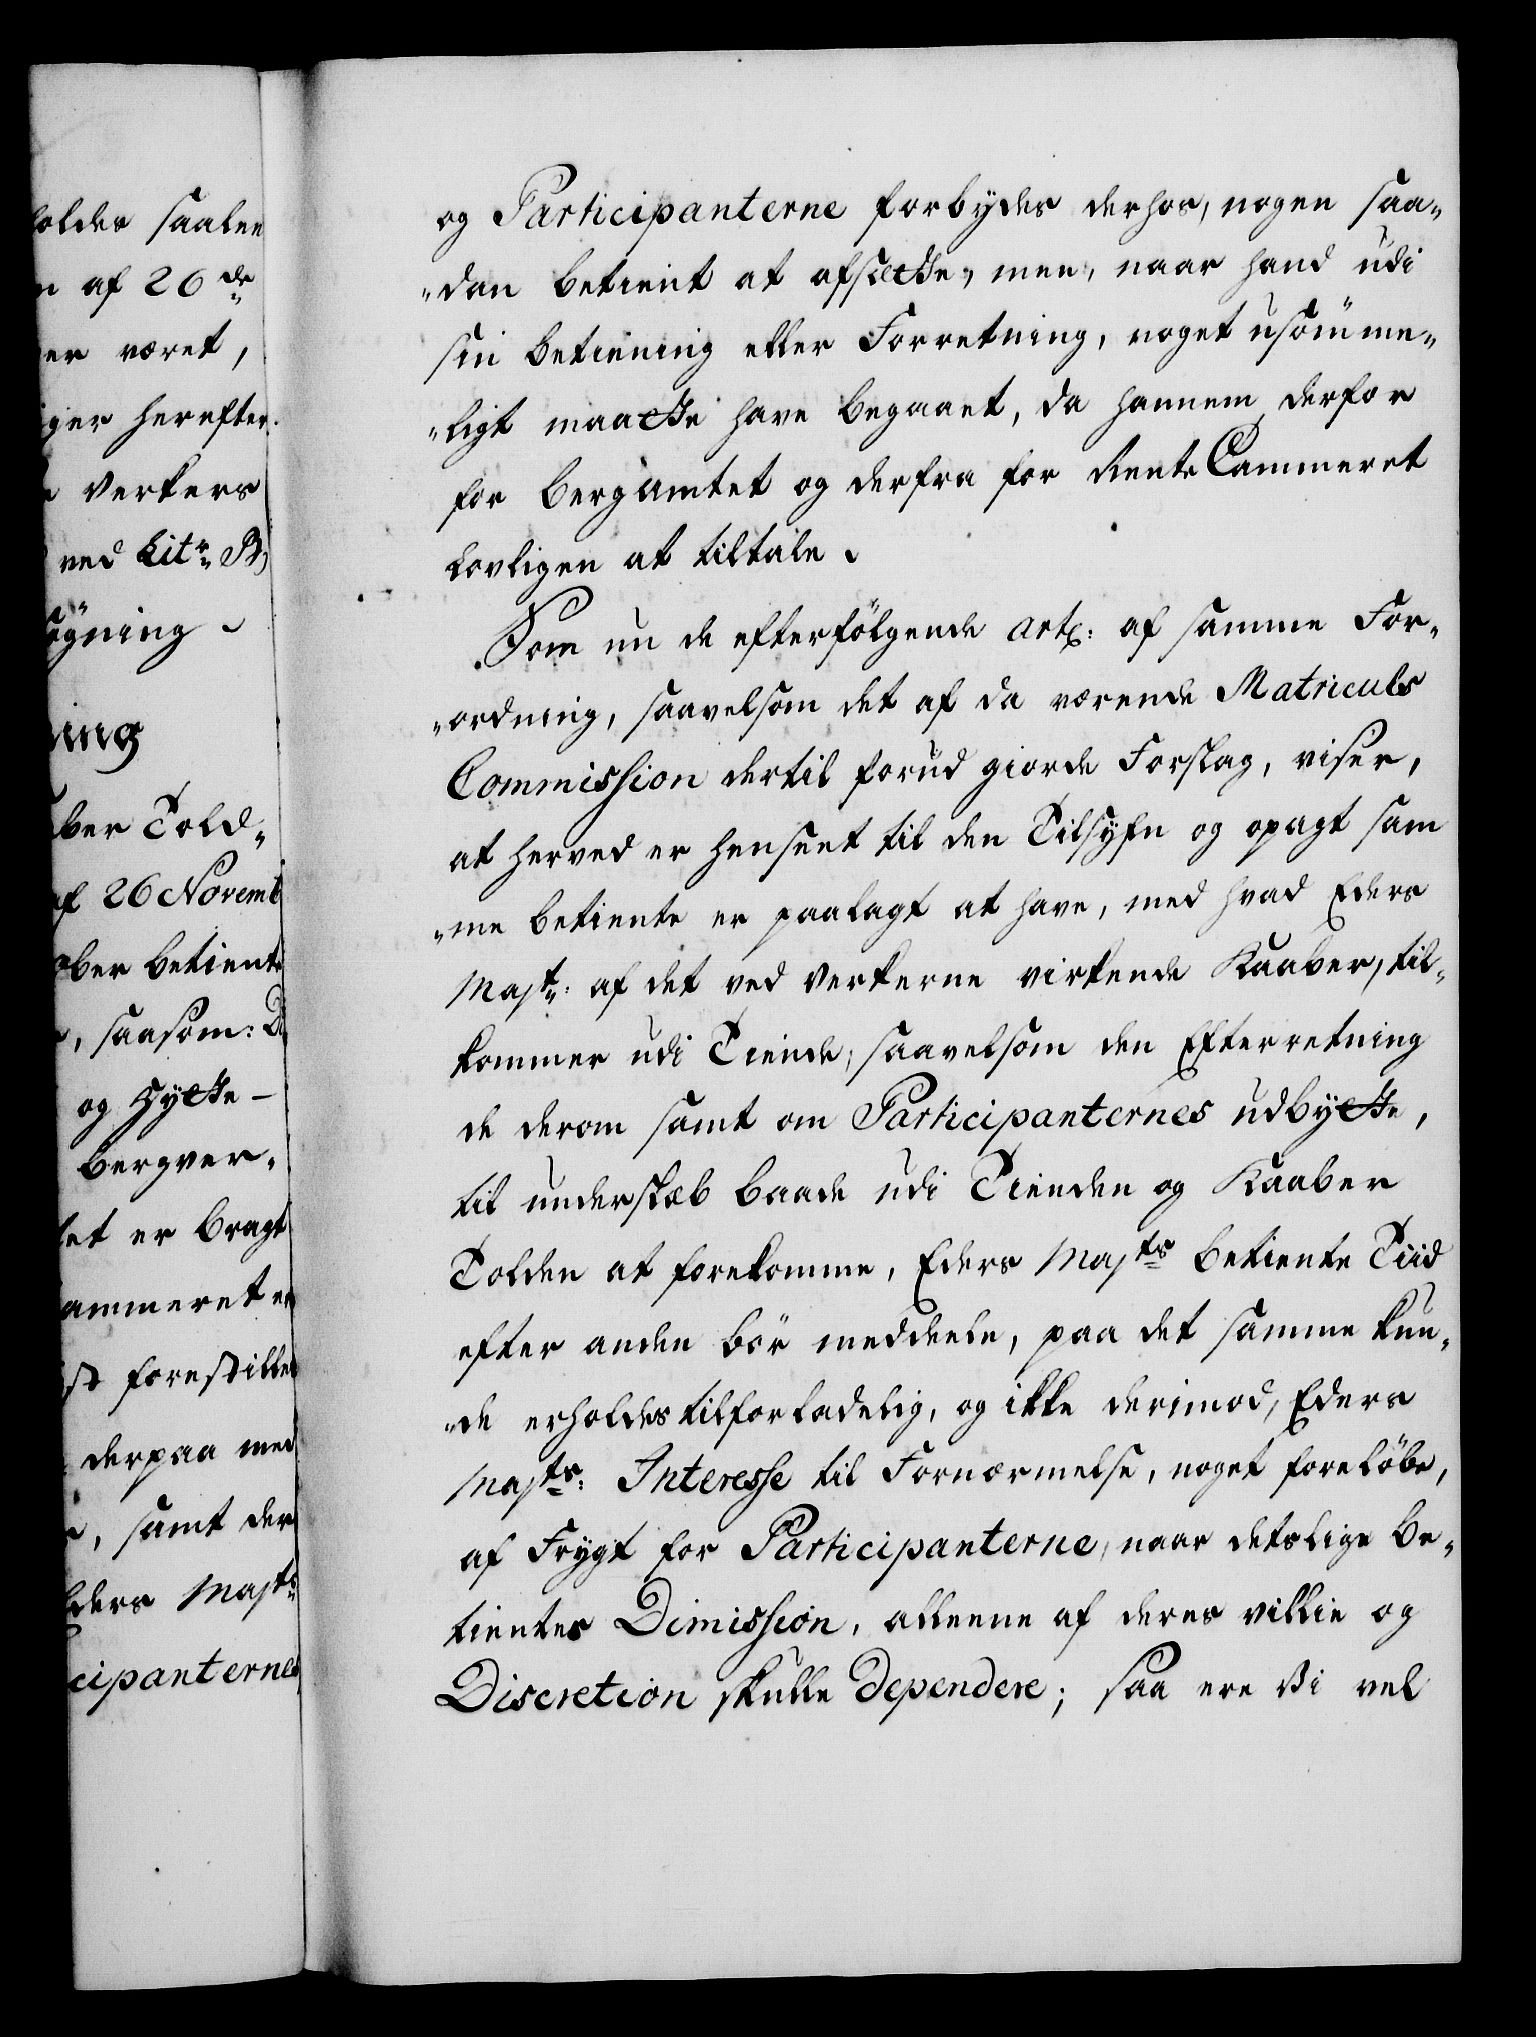 holdes saalen
n af 26 de
er været,
iger herefter.
e Verkers
ved Litr. B,
søgning.
ning
ber Told-
af 26 Novemb
ber betiente
, saasom: D
og Hytte-
Bergver-
let er bragt
ammeret er
st forestillet
derpaa med
, samt der
Eders Majts
cipanternes
og Participanterne forbydes derhos, nogen saa-
"dan betient at afsætte, men, naar hand udi
sin betiening eller Forretning, noget usömme-
"ligt maatte have begaaet, da hannem derfor
for bergamtet og derfra for RenteCammeret
lovligen at tiltale.
Som nu de efterfölgende art: af samme For-
"ordning, saavelsom det af da værende Matriculs
Commission dertil forud giorde Forslag, viser,
at herved er henseet til den Tilsyfn og opagt sam
"me betiente er paalagt at have, med hvad Eders
Majt: af det ved Verkerne virkende Kaaber, til-
kommer udi Tiende, saavelsom den Efterretning
de derom samt om Participanternes udbytte,
til underslæb baade udi Tienden og Kaaber
Tolden at forekomme, Eders Majts betiente Tiid
efter anden bör meddeele, paa det samme kun-
"de erholdes tilforladelig, og ikke derimod, Eders
Majts: Interesse til Fornærmelse, noget forelöbe,
af Frygt for Participanterne, naar detslige be-
tientes Dimission, alleene af deres villie og
Discretion skulle dependere; saa ere Vi vel